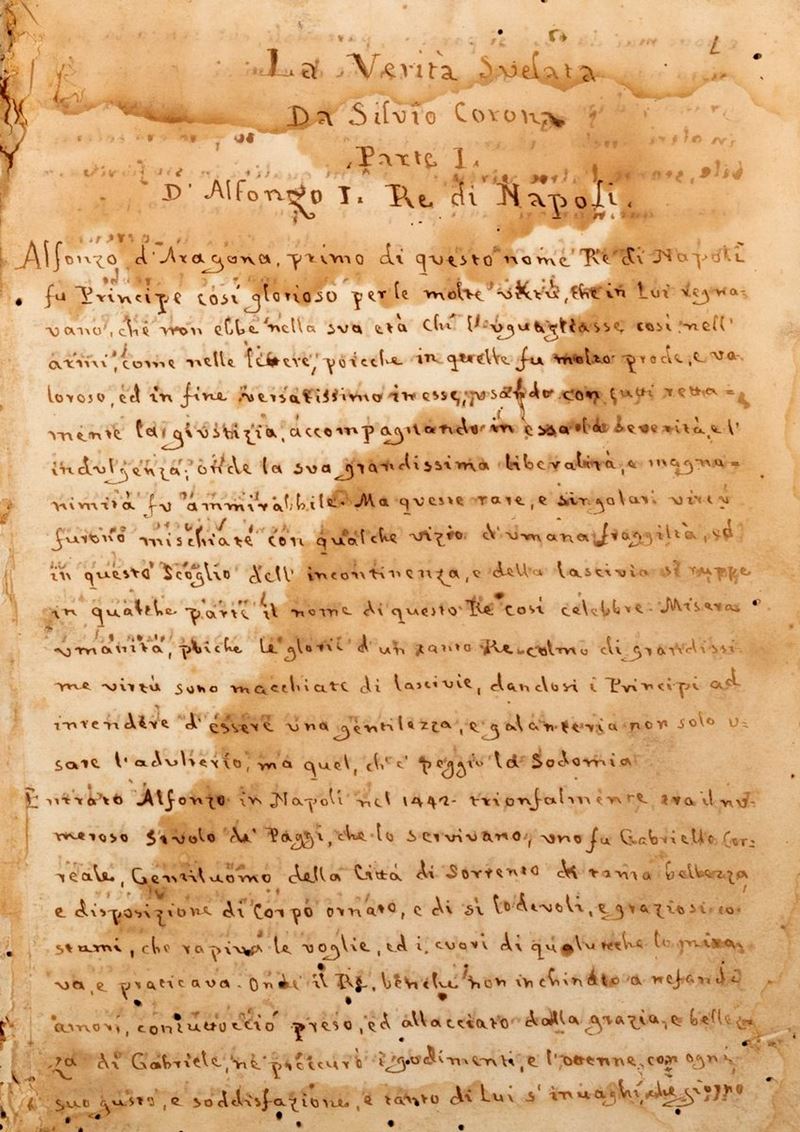 La Verità Svelata
Da Silvio Corona
Parte I.
D' Alfonzo I. Re di Napoli.
Alfonzo d'Aragona, primo di questo nome Re di Napoli
fu Principe così glorioso per le molte virtù, che in lui regna-
vano, che non ebbe nella sua età chi l'uguagliasse così nell'
armi, come nelle lettere, poicche in quelle fu molto prode, e va-
loroso, ed in fine versatissimo in esse, usando con tutti retta =
mente la giustizia, accompagnando in essa la severità, e l'
indulgenza, onde la sua grandissima liberalità, e magna =
nimità fu ammirabbile. Ma queste rare, e singolari virtù
furono mischiate con qualche vizio d'umana fraggilità, ed
in questo scoglio dell' incontinenza, e della lascivia si ruppe
in qualche parte il nome di questo Re così celebbre. Misera
umanità, poiche le glorie d'un tanto Re colmo di grandissi
me virtù sono macchiate di lascivie, dandosi i Principi ad
intendere d'essere una gentilezza, e galanteria non solo u=
sare l'adulterio, ma quel, ch'e' peggio la Sodomia
Entrato Alfonzo in Napoli nel 1442. trionfalmente tra il nu-
meroso stuolo de' Paggi, che lo servivano, uno fu Gabriello Cor=
reale, Gentiluomo della Città di Sorrento di tanta bellezza
e disposizione di corpo ornato, e di sì lodevoli, e graziosi co-
stumi, che rapiva le voglie, ed i cuori di qualunche lo mira-
va, e praticava. Onde il Re, benche non inchinato a nefandi
amori, contuttocciò preso, ed allacciato dalla grazia, e bellez-
za di Gabriele, ne procurò i godimenti, e l'ottenne con ogni
suo gusto, e soddisfazione, e tanto di lui s'invaghì, che giorno